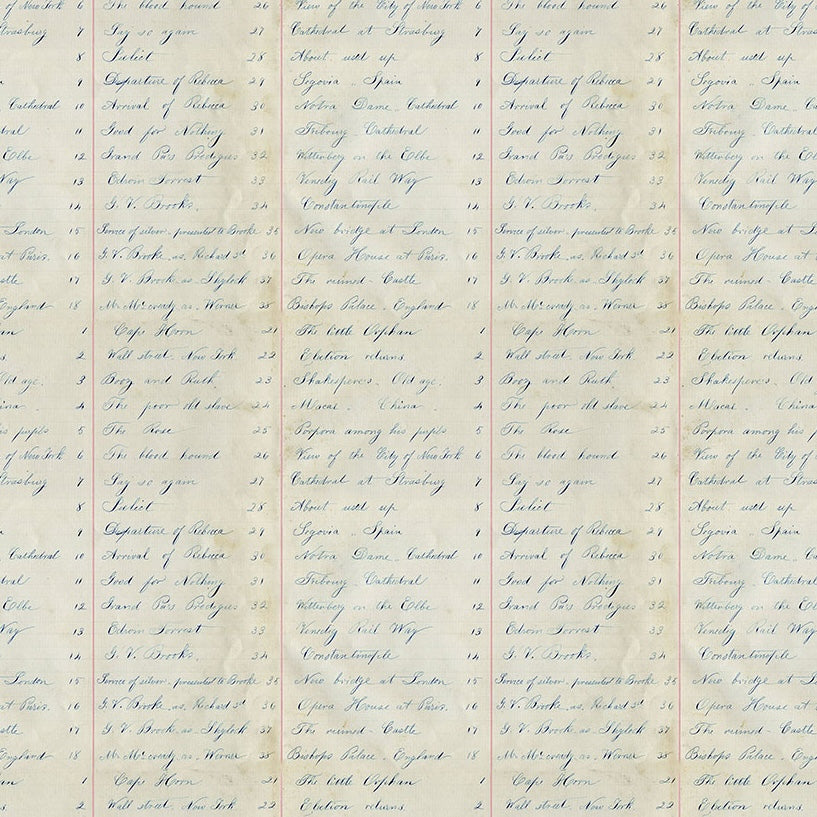 of New York 6 The blood hound 26 View of the City of New York 6 The blood hound 26 View of the City of
Strasburg 7 Say so again 27 Cathedral at Strassburg 7 Say so again 27 Cathedral at Stras
8 Juliet 28 About used up 8 Juliet 28 About used up
9 Departure of Rebecca 29 Segovia .. Spain 9 Departure of Rebecca 29 Segovia .. Spain
Cathedral 10 Arrival of Rebecca 30 Notra Dame .. Cathedral 10 Arrival of Rebecca 30 Notra Dame .. Ca
dral 11 Good for Nothing 31 Fribourg . Cathedral 11 Good for Nothing 31 Fribourg . Cathedral
Elbe 12 Grand Pa's Prodigies 32 Wittenberg on the Elbe 12 Grand Pa's Prodigies 32 Wittenberg on the Elbe
Way 13 Edwin Forrest 33 Venedig Rail Way 13 Edwin Forrest 33 Venedig Rail Way
14 G. V. Brooke. 34 Constantinople 14 G. V. Brooke. 34 Constantinople
London 15 Service of silver - presented to Brooke 35 New bridge at London 15 Service of silver - presented to Brooke 35 New bridge at London
at Paris. 16 G. V. Brooke. as. Richard 3d 36 Opera House at Paris. 16 G. V. Brooke. as. Richard 3d 36 Opera House at
stle 17 G. V. Brooke as Shylock 37 The ruined - Castle 17 G. V. Brooke as Shylock 37 The ruined - Castle
England 18 Mr McCready as. Werner 38 Bishops Palace . England 18 Mr McCready as. Werner 38 Bishops Palace . England
an 1 Cape Horn 21 The little Orphan 1 Cape Horn 21 The little Orphan
s 2 Wall street. New York 22 Election returns 2 Wall street. New York 22 Election returns
Old age. 3 Booz and Ruth 23 Shakespere's . Old age. 3 Booz and Ruth 23 Shakespere's . Old
ina . 4 The poor old slave 24 Macao . China . 4 The poor old slave 24 Macao . China
is pupils 5 The Rose 25 Porpora among his pupils 5 The Rose 25 Porpora among his pupils
of New York 6 The blood hound 26 View of the City of New York 6 The blood hound 26 View of the City of
Strassburg 7 Say so again 27 Cathedral at Strassburg 7 Say so again 27 Cathedral at Stras
8 Juliet 28 About used up 8 Juliet 28 About used up
9 Departure of Rebecca 29 Segovia .. Spain 9 Departure of Rebecca 29 Segovia .. Spain
Cathedral 10 Arrival of Rebecca 30 Notra Dame .. Cathedral 10 Arrival of Rebecca 30 Notra Dame .. Ca
dral 11 Good for Nothing 31 Fribourg . Cathedral 11 Good for Nothing 31 Fribourg . Cathedral
Elbe 12 Grand Pa's Prodigies 32 Wittenberg on the Elbe 12 Grand Pa's Prodigies 32 Wittenberg on the Elbe
Way 13 Edwin Forrest 33 Venedig Rail Way 13 Edwin Forrest 33 Venedig Rail Way
14 G. V. Brooke. 34 Constantinople 14 G. V. Brooke. 34 Constantinople
London 15 Service of silver - presented to Brooke 35 New bridge at London 15 Service of silver - presented to Brooke 35 New bridge at London
at Paris. 16 G. V. Brooke. as. Richard 3d 36 Opera House at Paris. 16 G. V. Brooke. as. Richard 3d 36 Opera House at
stle 17 G. V. Brooke as Shylock 37 The ruined - Castle 17 G. V. Brooke as Shylock 37 The ruined - Castle
England 18 Mr McCready as. Werner 38 Bishops Palace . England 18 Mr McCready as. Werner 38 Bishops Palace . England
an 1 Cape Horn 21 The little Orphan 1 Cape Horn 21 The little Orphan
s 2 Wall street. New York 22 Election returns 2 Wall street. New York 22 Election returns